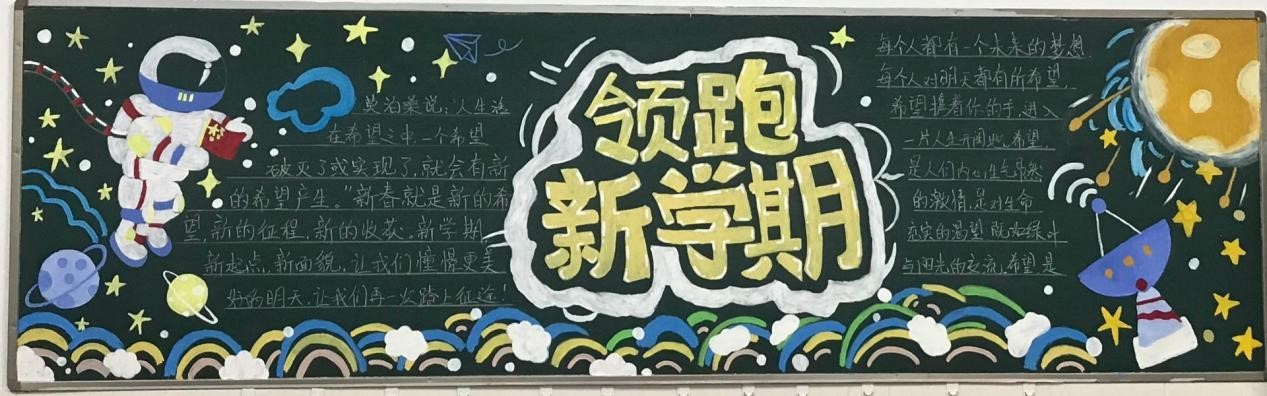 莫泊桑说:"人生活
在希望之中,一个希望
破灭了或实现了,就会有新
的希望产生。"新春就是新的希
望,新的征程,新的收获。新学期
新起点,新面貌,让我们憧憬更美
好的明天,让我们再一次踏上征途!
领跑
新学期
每个人都有一个未来的梦想,
每个人对明天都有所希望,
希望携着你的手,进入
一片人生开阔地,希望
是人们内心生气昂然
的激情,是对生命
充实的渴望,既如绿叶
与阳光的交流,希望是